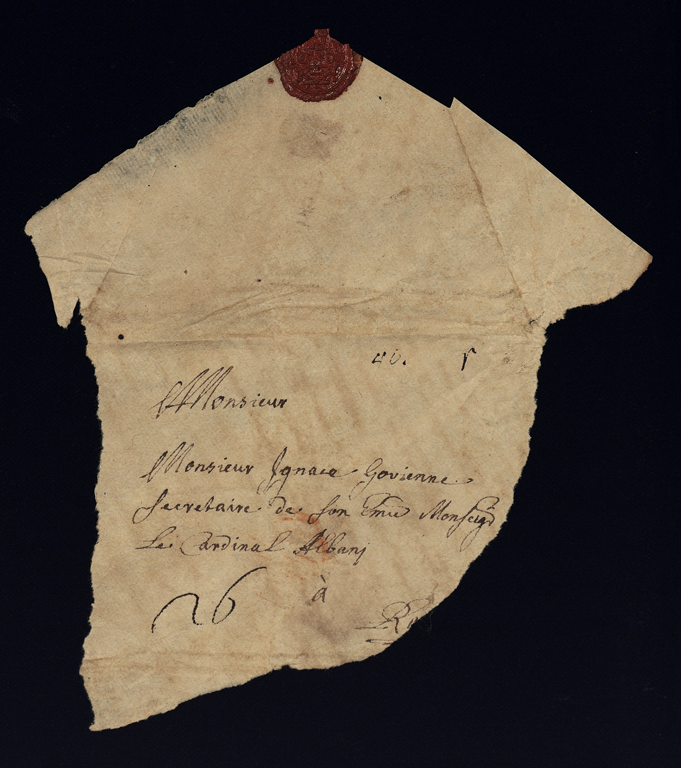 40. f
Monsieur
Monsieur Ignace Govienne
Secretaire de son Eme Monseigr
Le Cardinal Albanj
à
26
Ro